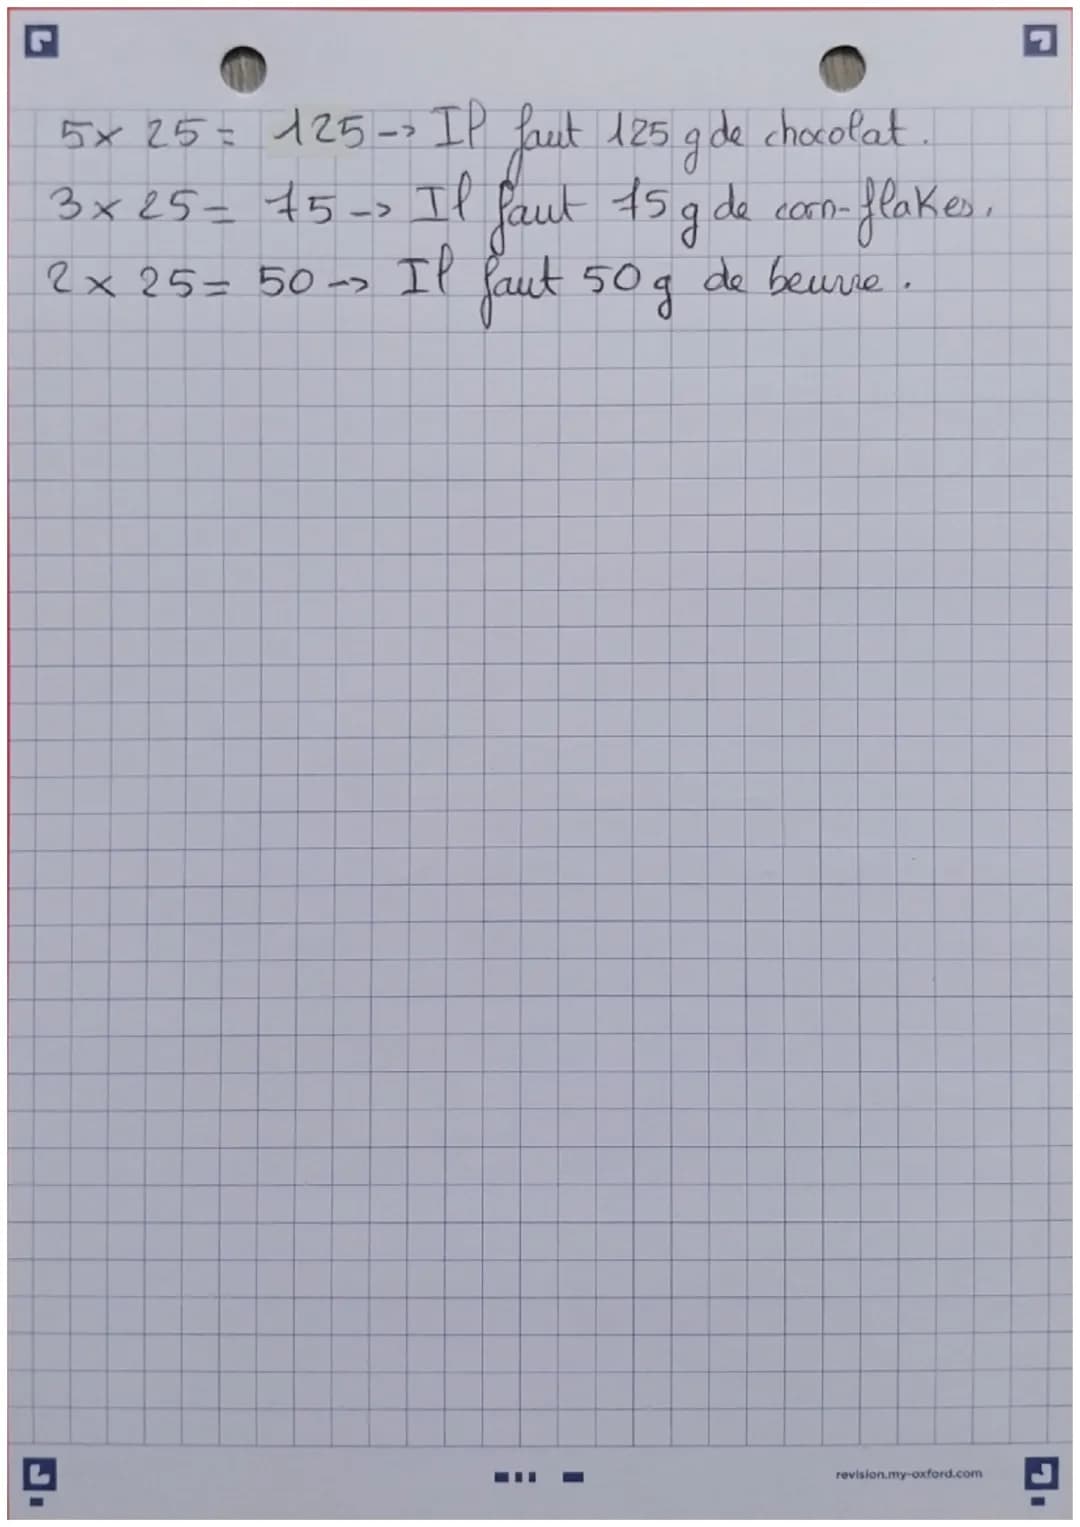 5x 25 = 125 -> Il faut 125 g de chocolat.
3 x 25 = 75 -> Il faut 75 g de corn-flakes.
2 x 25 = 50 -> Il faut 50 g de beurre.
revision.my-oxford.com